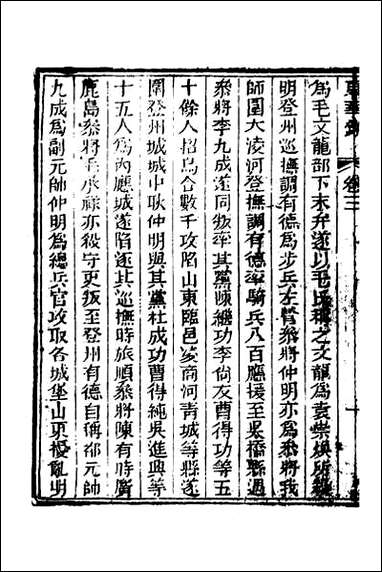 東華錄 卷三 十
為毛文龍部下末弁遂以毛氏稱之文龍為袁崇煥所
明登州巡撫調有德為步兵左營叅將仲明亦為叅將我
師圍大凌河登撫調有德率騎兵八百應援至吳橋縣遇
叅將李九成遂同叛率其黨陳繼功李尚友曹得功等五
十餘人招烏合數千攻陷山東臨邑凌商河青城等縣遂
圍登州城城中耿仲明與其黨杜成功曹得純吳進興等
十五人為內應城遂陷逐其巡撫時旅順叅將陳有時廣
鹿島叅將毛承祿亦殺守吏叛至登州有德自稱都元帥
九成為副元帥仲明為總兵官攻取各城堡山東擾亂明